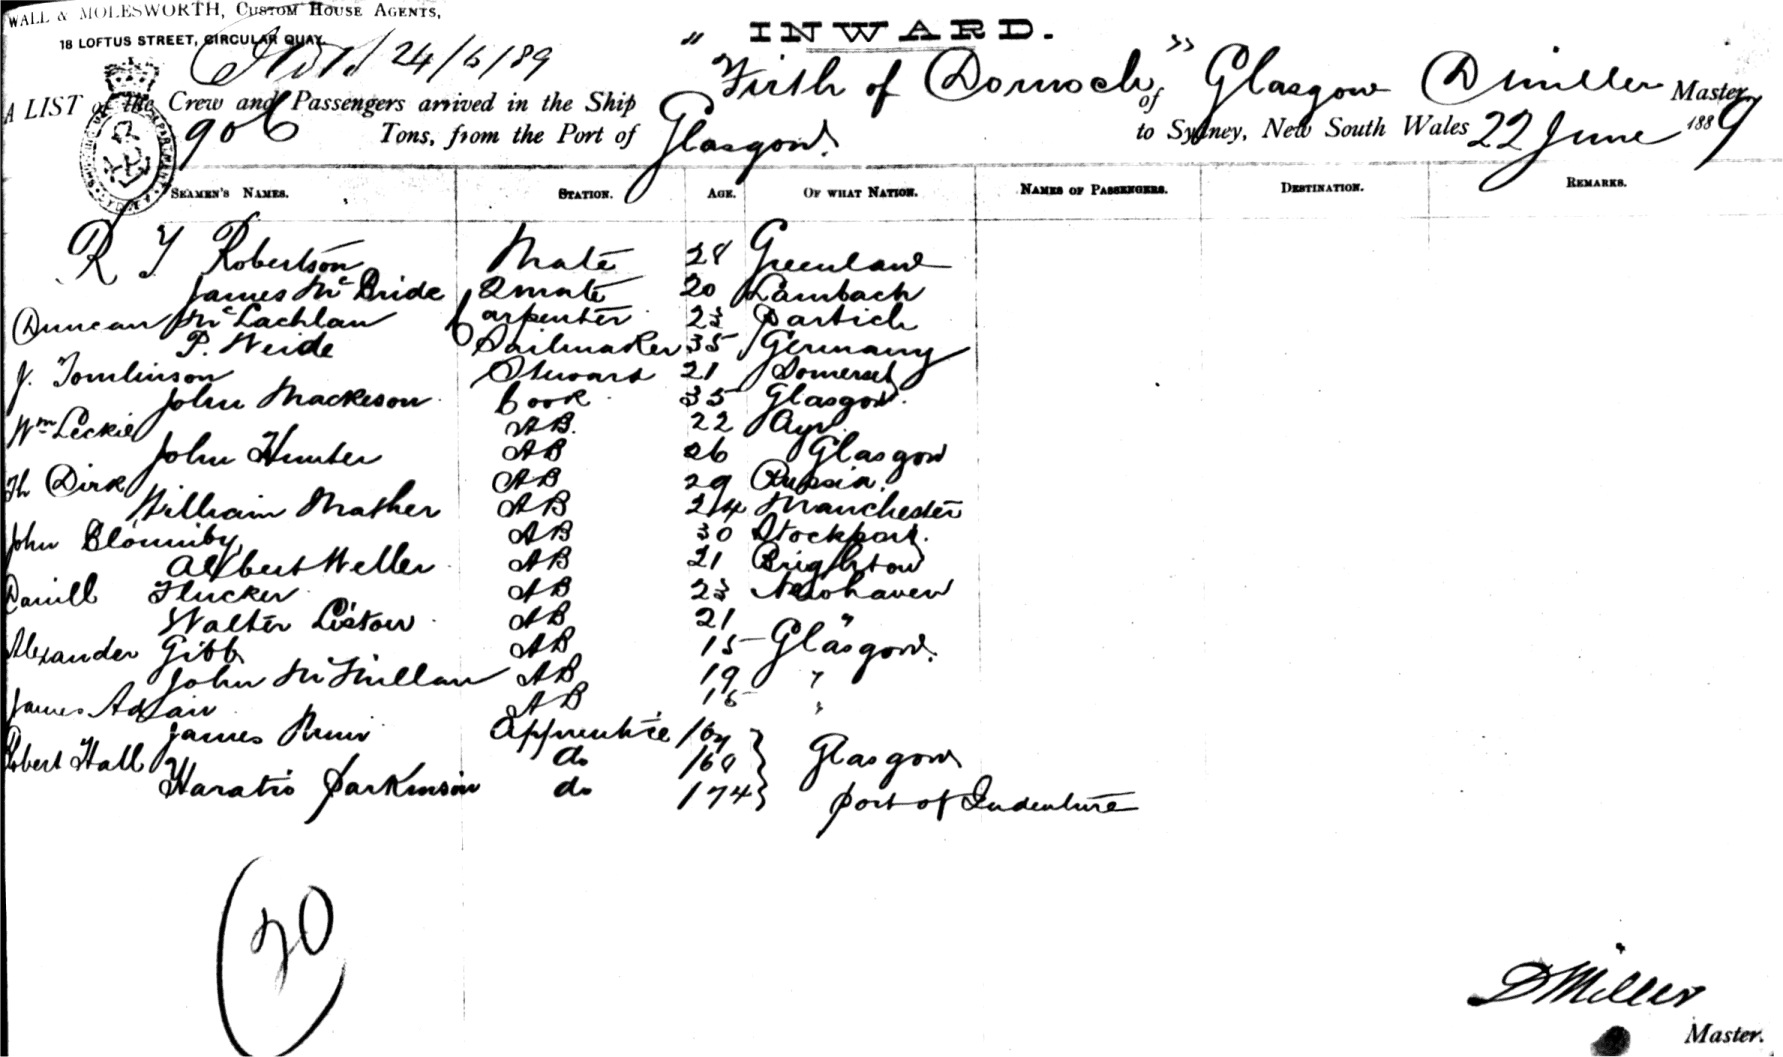 WALL & MOLESWORTH, CUSTOM HOUSE AGENTS,
18 LOFTUS STREET, CIRCULAR QUAY.
24/6/89
INWARD.
A LIST of the Crew and Passengers arrived in the Ship "Firth of Dornoch" of Glasgow D Miller Master
906 Tons, from the Port of Glasgow to Sydney, New South Wales 22 June 1889
SEAMEN'S NAMES. STATION. AGE. OF WHAT NATION. NAMES OF PASSENGERS. DESTINATION. REMARKS.
R Y Robertson Mate 28 Greenland
James McBride 2 mate 20 Lambach
Duncan McLachlan Carpenter 23 Partick
P. Weide Sailmaker 35 Germany
J. Tomlinson Steward 21 Somerset
John Mackeson Cook 35 Glasgow.
Wm Leckie AB. 22 Ayr
John Hunter AB 26 Glasgow
Th Dirk AB 29 Russia.
William Mather AB 24 Manchester
John AB 30 Stockport.
Albert Weller AB 21 Brighton
Daniell Flucker AB 23 Newhaven
Walter Liston AB 21 "
Alexander Gibb AB 15 Glasgow.
John McMillan AB 19 "
James Adair AB "
James Muir Apprentice
Robert Hall do Glasgow
Haratio Parkinson do 174 Port of Indenture
20
D Miller
Master.